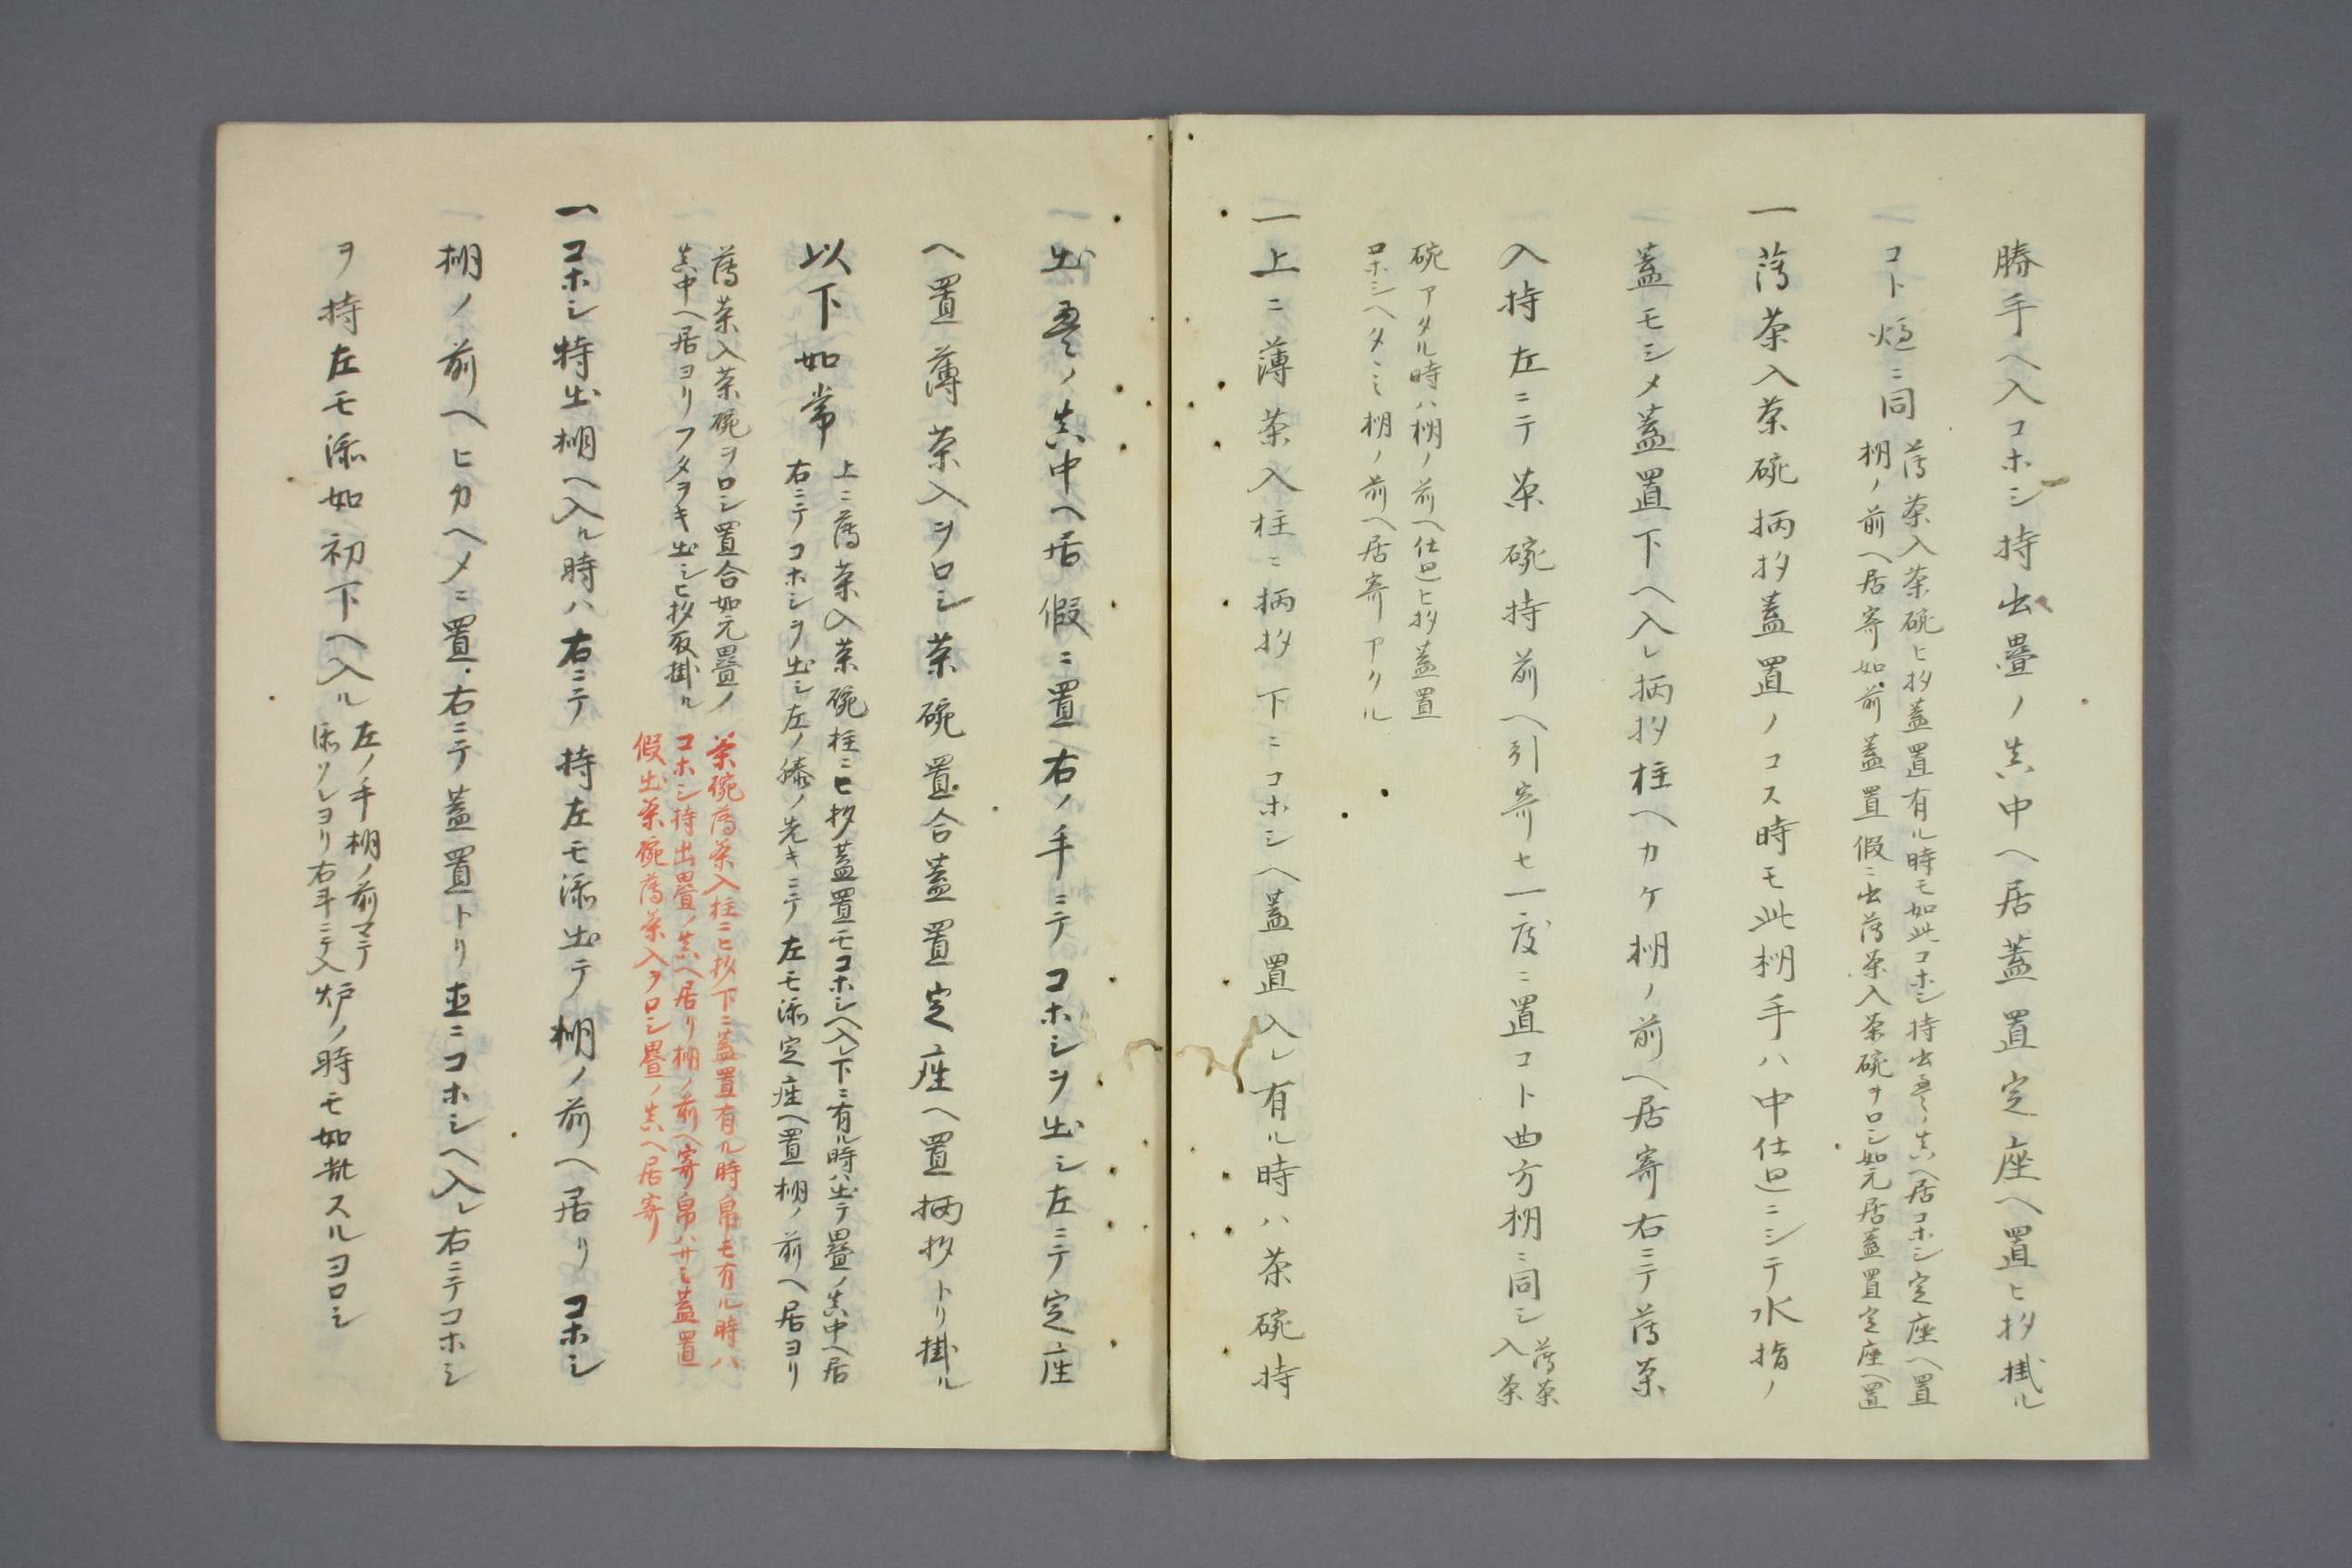 勝手ヘ入コホシ持出疊ノ真中ヘ居蓋置定座ヘ置ヒ杓掛ル
コト爐ニ同
薄茶入茶碗ヒ杓蓋置有ル時モ如此コホシ持出疊ノ真ヘ居コホシ定座ヘ置
棚ノ前ヘ居寄如前蓋置假ニ出薄茶入茶碗ヲロシ如元居蓋置定座ヘ置
一薄茶入茶碗柄杓蓋置ノコス時モ此棚手ハ中仕囘ニシテ水指ノ
蓋モシメ蓋置下ヘ入レ柄杓柱ヘカケ棚ノ前ヘ居寄右ニテ薄茶
入持左ニテ茶碗持前ヘ引寄セ一度ニ置コト四方棚ニ同シ
薄茶
入茶
碗アタル時ハ棚ノ前ヘ仕囘ヒ杓蓋置
コホシヘタヽミ棚ノ前ヘ居寄アクル
一上ニ薄茶入柱ニ柄杓下ニコホシヘ蓋置入レ有ル時ハ茶碗持
出疊ノ真中ヘ居假ニ置右ノ手ニテコホシヲ出シ左ニテ定座
ヘ置薄茶入ヲロシ茶碗置合蓋置定座ヘ置柄杓トリ掛ル
以下如常
上ニ薄茶入茶碗柱ニヒ杓蓋置モコホシヘ入レ下ニ有ル時ハ出テ疊ノ真中ヘ居
右ニテコホシヲ出シ左ノ膝ノ先キニテ左モ添定座ヘ置棚ノ前ヘ居ヨリ
薄茶入茶碗ヲロシ置合如元疊ノ
真中ヘ居ヨリフタヲキ出シヒ杓取掛ル
茶碗薄茶入柱ニヒ杓下ニ蓋置有ル時帛モ有ル時ハ
コホシ持出疊ノ真ヘ居リ棚ノ前ヘ寄帛ハサミ蓋置
假出茶碗薄茶入ヲロシ疊ノ真ヘ居寄
一コホシ持出棚ヘ入ル時ハ右ニテ持左モ添出テ棚ノ前ヘ居リコホシ
棚ノ前ヘヒカヘメニ置右ニテ蓋置トリ直ニコホシヘ入レ右ニテコホシ
ヲ持左モ添如初下ヘ入ル
左ノ手棚ノ前マテ
添ソレヨリ右手ニテ入
炉ノ時モ如此スルヨロシ